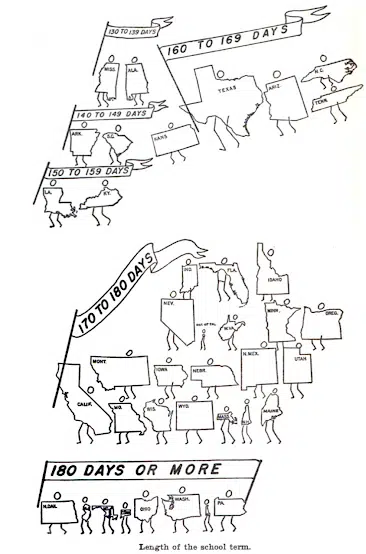 130 TO 139 DAYS
MISS.
ALA.
160 TO 169 DAYS
TEXAS
ARIZ.
N.C.
TENN.
140 TO 149 DAYS
ARK.
S.C.
KANS.
150 TO 159 DAYS
LA.
KY.
170 TO 180 DAYS
IND.
FLA.
IDAHO
NEV.
W.VA.
MINN.
OREG.
MONT.
IOWA
NEBR.
N.MEX.
UTAH
CALIF.
MO.
WIS.
WYO.
MASS.
MAINE
180 DAYS OR MORE
N.DAK.
OHIO
WASH.
PA.
Length of the school term.